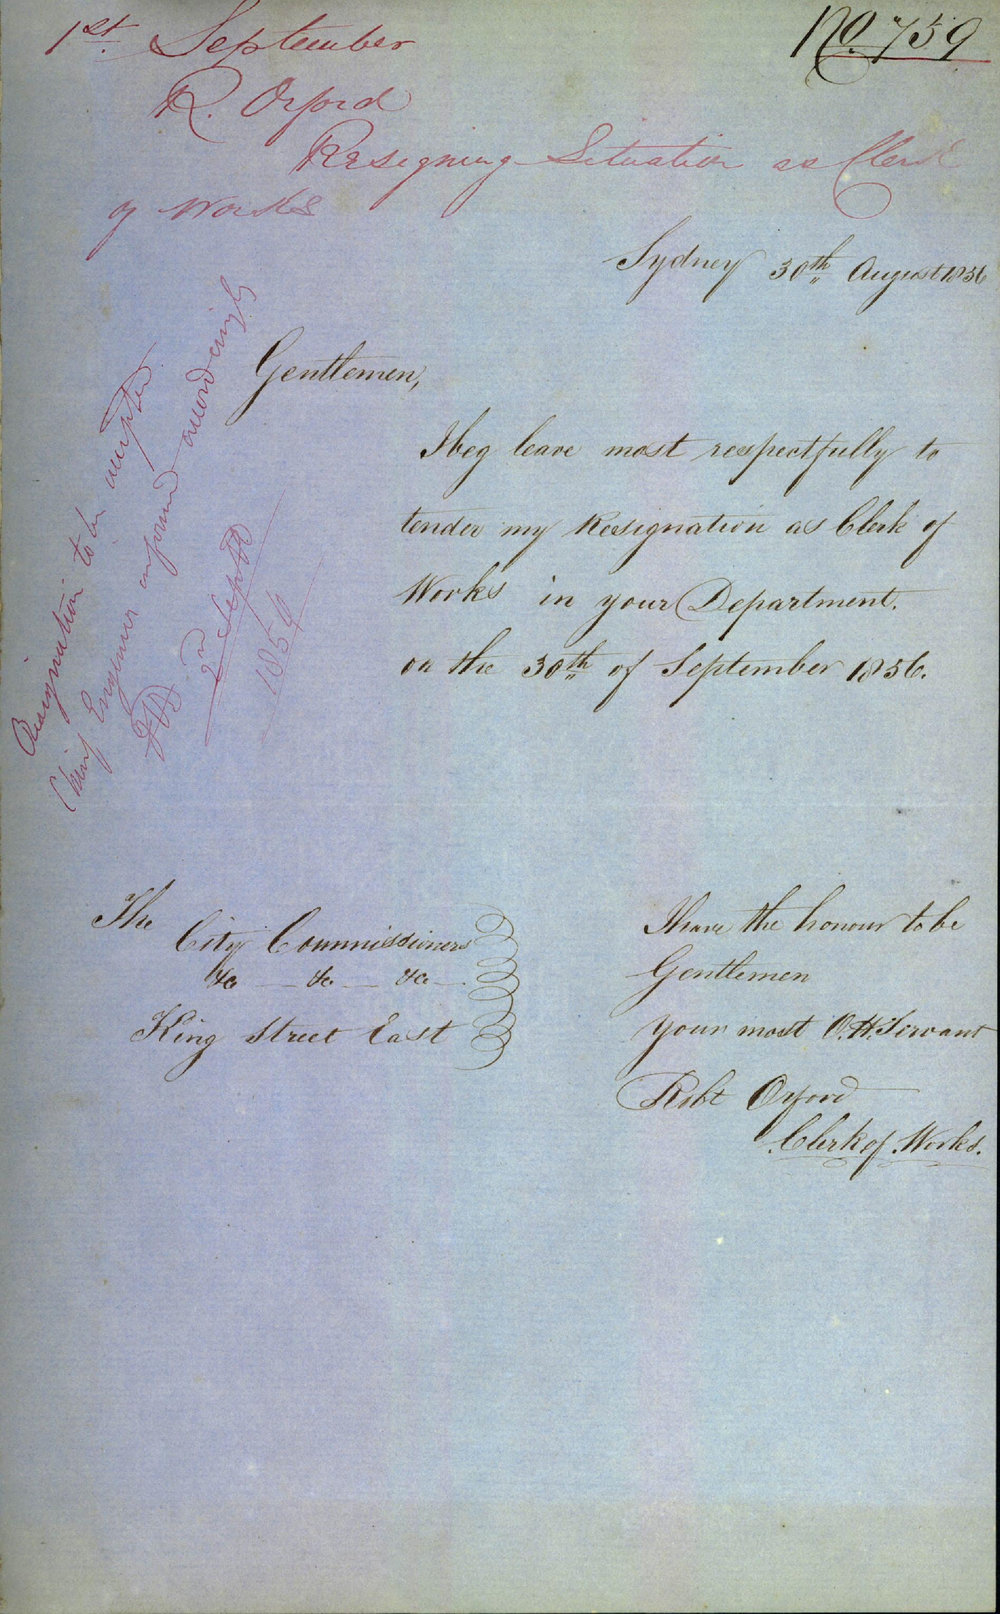 No. 759
1st. September
R. Orford
Resigning Situation as Clerk
of Works
Sydney 30th August 1856
Gentlemen,
I beg leave most respectfully to
tender my Resignation as Clerk of
Works in your Department.
on the 30th of September 1856.
Resignation to be accepted
Chief Engineer informed accordingly
2nd Septr
1856
The
City Commissioners
&c — &c — &c —
King Street East
I have the honour to be
Gentlemen
your most O. H. Servant
Robt Orford
Clerk of Works.